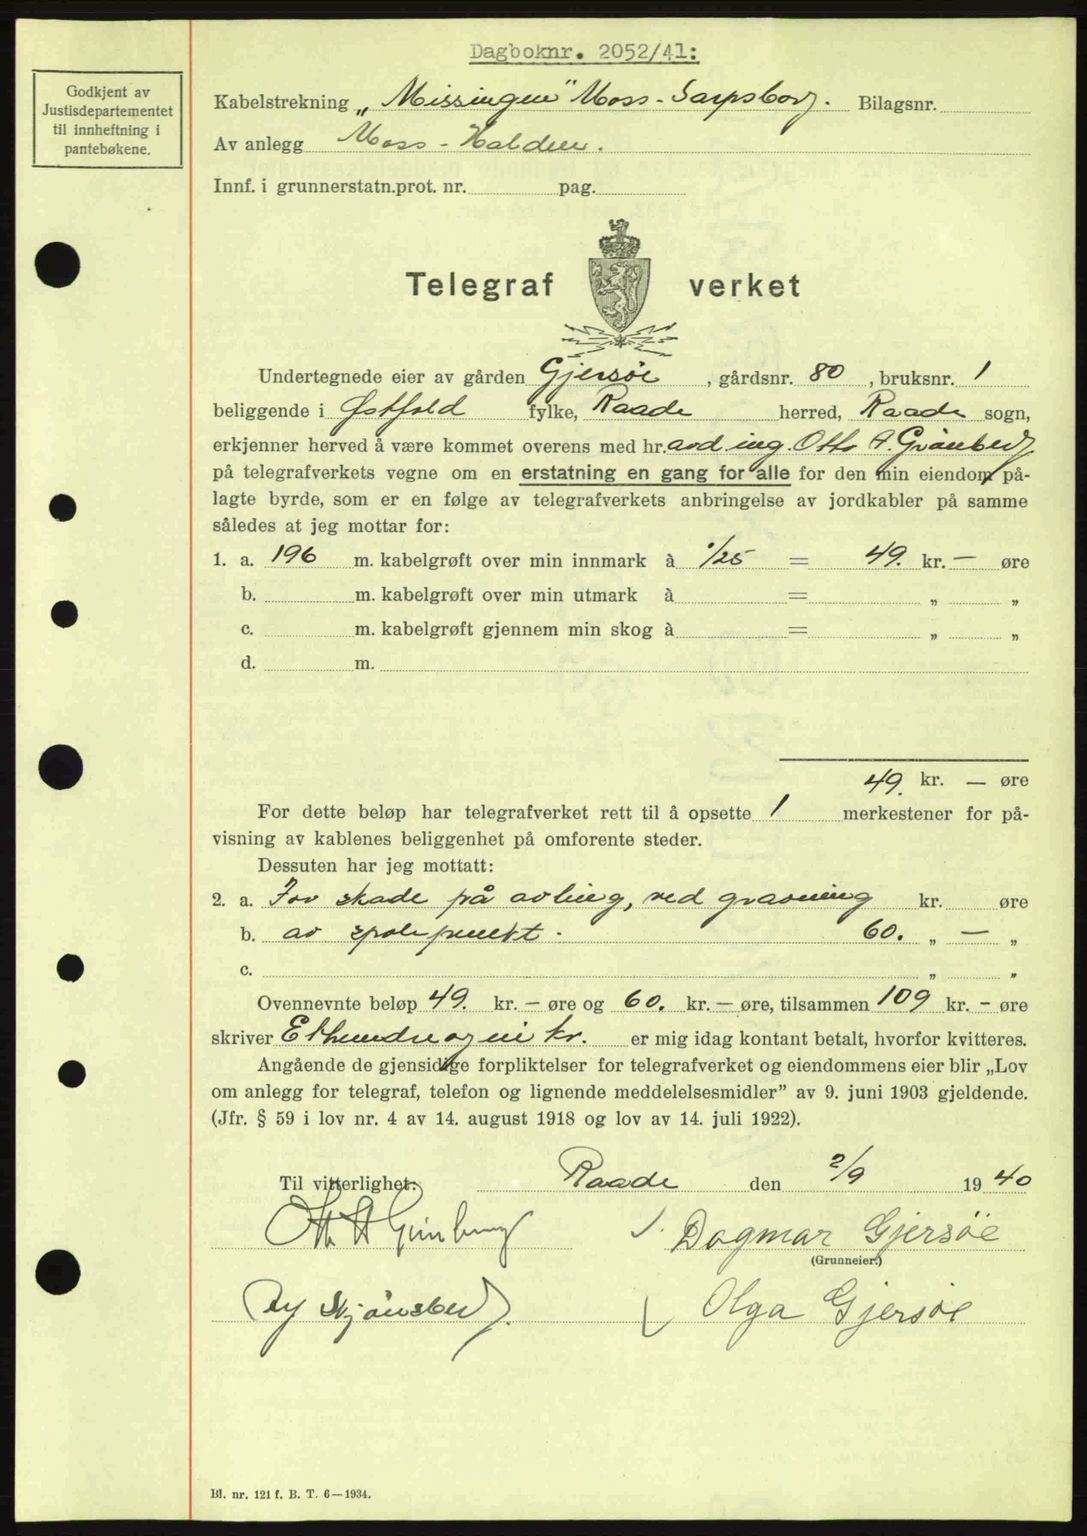 Dagboknr. 2052/41:
Godkjent av
Justisdepartementet
til innheftning i
pantebøkene.
Kabelstrekning „Missingen" Moss-Sarpsborg. Bilagsnr.
Av anlegg Moss-Halden.
Innf. i grunnerstatn.prot. nr. pag.
Telegraf verket
Undertegnede eier av gården Gjersøe, gårdsnr. 80, bruksnr. 1
beliggende i Østfold fylke, Raade herred, Raade sogn,
erkjenner herved å være kommet overens med hr. avd.ing. Otto A. Grönberg
på telegrafverkets vegne om en erstatning en gang for alle for den min eiendom på-
lagte byrde, som er en følge av telegrafverkets anbringelse av jordkabler på samme
således at jeg mottar for:
1. a. 196 m. kabelgrøft over min innmark à -/25 = 49. kr. — øre
b. m. kabelgrøft over min utmark à = „ „
c. m. kabelgrøft gjennem min skog à = „ „
d. m.
49. kr. — øre
For dette beløp har telegrafverket rett til å opsette 1 merkestener for på-
visning av kablenes beliggenhet på omforente steder.
Dessuten har jeg mottatt:
2. a. For skade på avling, ved gravning kr. øre
b. av spolepunkt. 60. „ — „
c. „ „
Ovennevnte beløp 49. kr. – øre og 60. kr. – øre, tilsammen 109 kr. – øre
skriver Ethundreogni kr. er mig idag kontant betalt, hvorfor kvitteres.
Angående de gjensidige forpliktelser for telegrafverket og eiendommens eier blir „Lov
om anlegg for telegraf, telefon og lignende meddelelsesmidler" av 9. juni 1903 gjeldende.
(Jfr. § 59 i lov nr. 4 av 14. august 1918 og lov av 14. juli 1922).
Til vitterlighet: Raade den 2/9 1940
Otto A Grönberg Dagmar Gjersøe
(Grunneier.)
Skjönsberg. Olga Gjersøe
Bl. nr. 121 f. B. T. 6—1934.